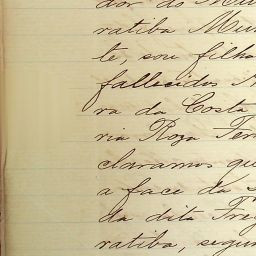 dor do Mun
ratiba Mun
te, sou filha
fallecidos
ra da Costa
ria Roza Fer
claramos que
a face da
da dita Freg
ratiba, segun